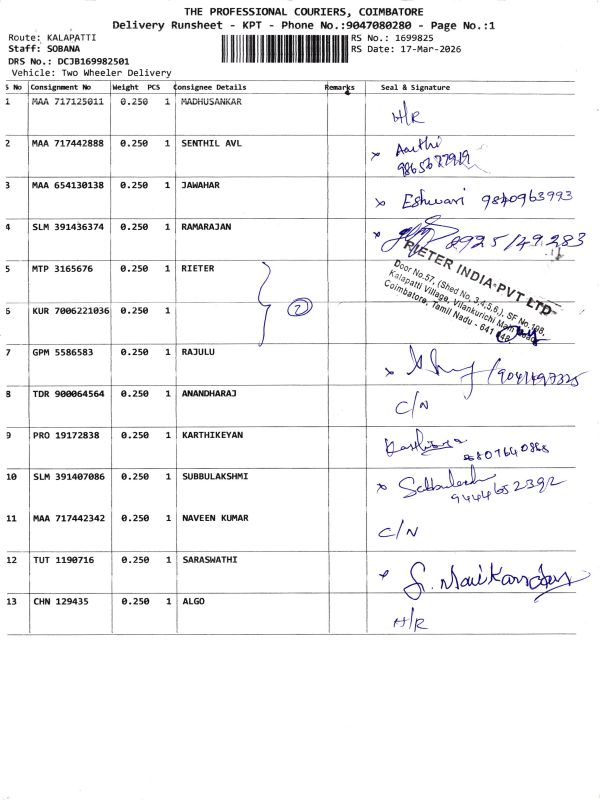 THE PROFESSIONAL COURIERS, COIMBATORE
Delivery Runsheet - KPT - Phone No.:9047080280 - Page No.:1
Route: KALAPATTI
RS No.: 1699825
Staff: SOBANA
RS Date: 17-Mar-2026
DRS No.: DCJB169982501
Vehicle: Two Wheeler Delivery
S No Consignment No Weight PCS Consignee Details Remarks Seal & Signature
1 MAA 717125011 0.250 1 MADHUSANKAR H/R
2 MAA 717442888 0.250 1 SENTHIL AVL x Aarthi
9865627919
3 MAA 654130138 0.250 1 JAWAHAR x Eshwari 9840963993
4 SLM 391436374 0.250 1 RAMARAJAN x 8925149283
5 MTP 3165676 0.250 1 RIETER
6 KUR 7006221036 0.250 1
2
RIETER INDIA PVT LTD
Door No.57, (Shed No. 3,4,5,6.), SF No.198,
Kalapatti Village, Vilankurichi Main Road,
Coimbatore, Tamil Nadu - 641
7 GPM 5586583 0.250 1 RAJULU x
8 TDR 900064564 0.250 1 ANANDHARAJ C/N
9 PRO 19172838 0.250 1 KARTHIKEYAN
10 SLM 391407086 0.250 1 SUBBULAKSHMI x
9444652392
11 MAA 717442342 0.250 1 NAVEEN KUMAR C/N
12 TUT 1190716 0.250 1 SARASWATHI x S. Manikandan
13 CHN 129435 0.250 1 ALGO H/R